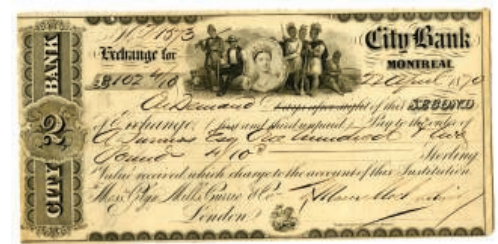 No. D/1573
City Bank
Exchange for
MONTREAL
£102 4/10
22 April 1870
On Demand days after sight of this SECOND
of Exchange (first and third unpaid) Pay to the order of
Esq One hundred & two
Pounds 4/10 Sterling
Value received, which charge to the account of this Institution.
Mess. Glyn Mills Currie & Co.
London
CITY 2 BANK